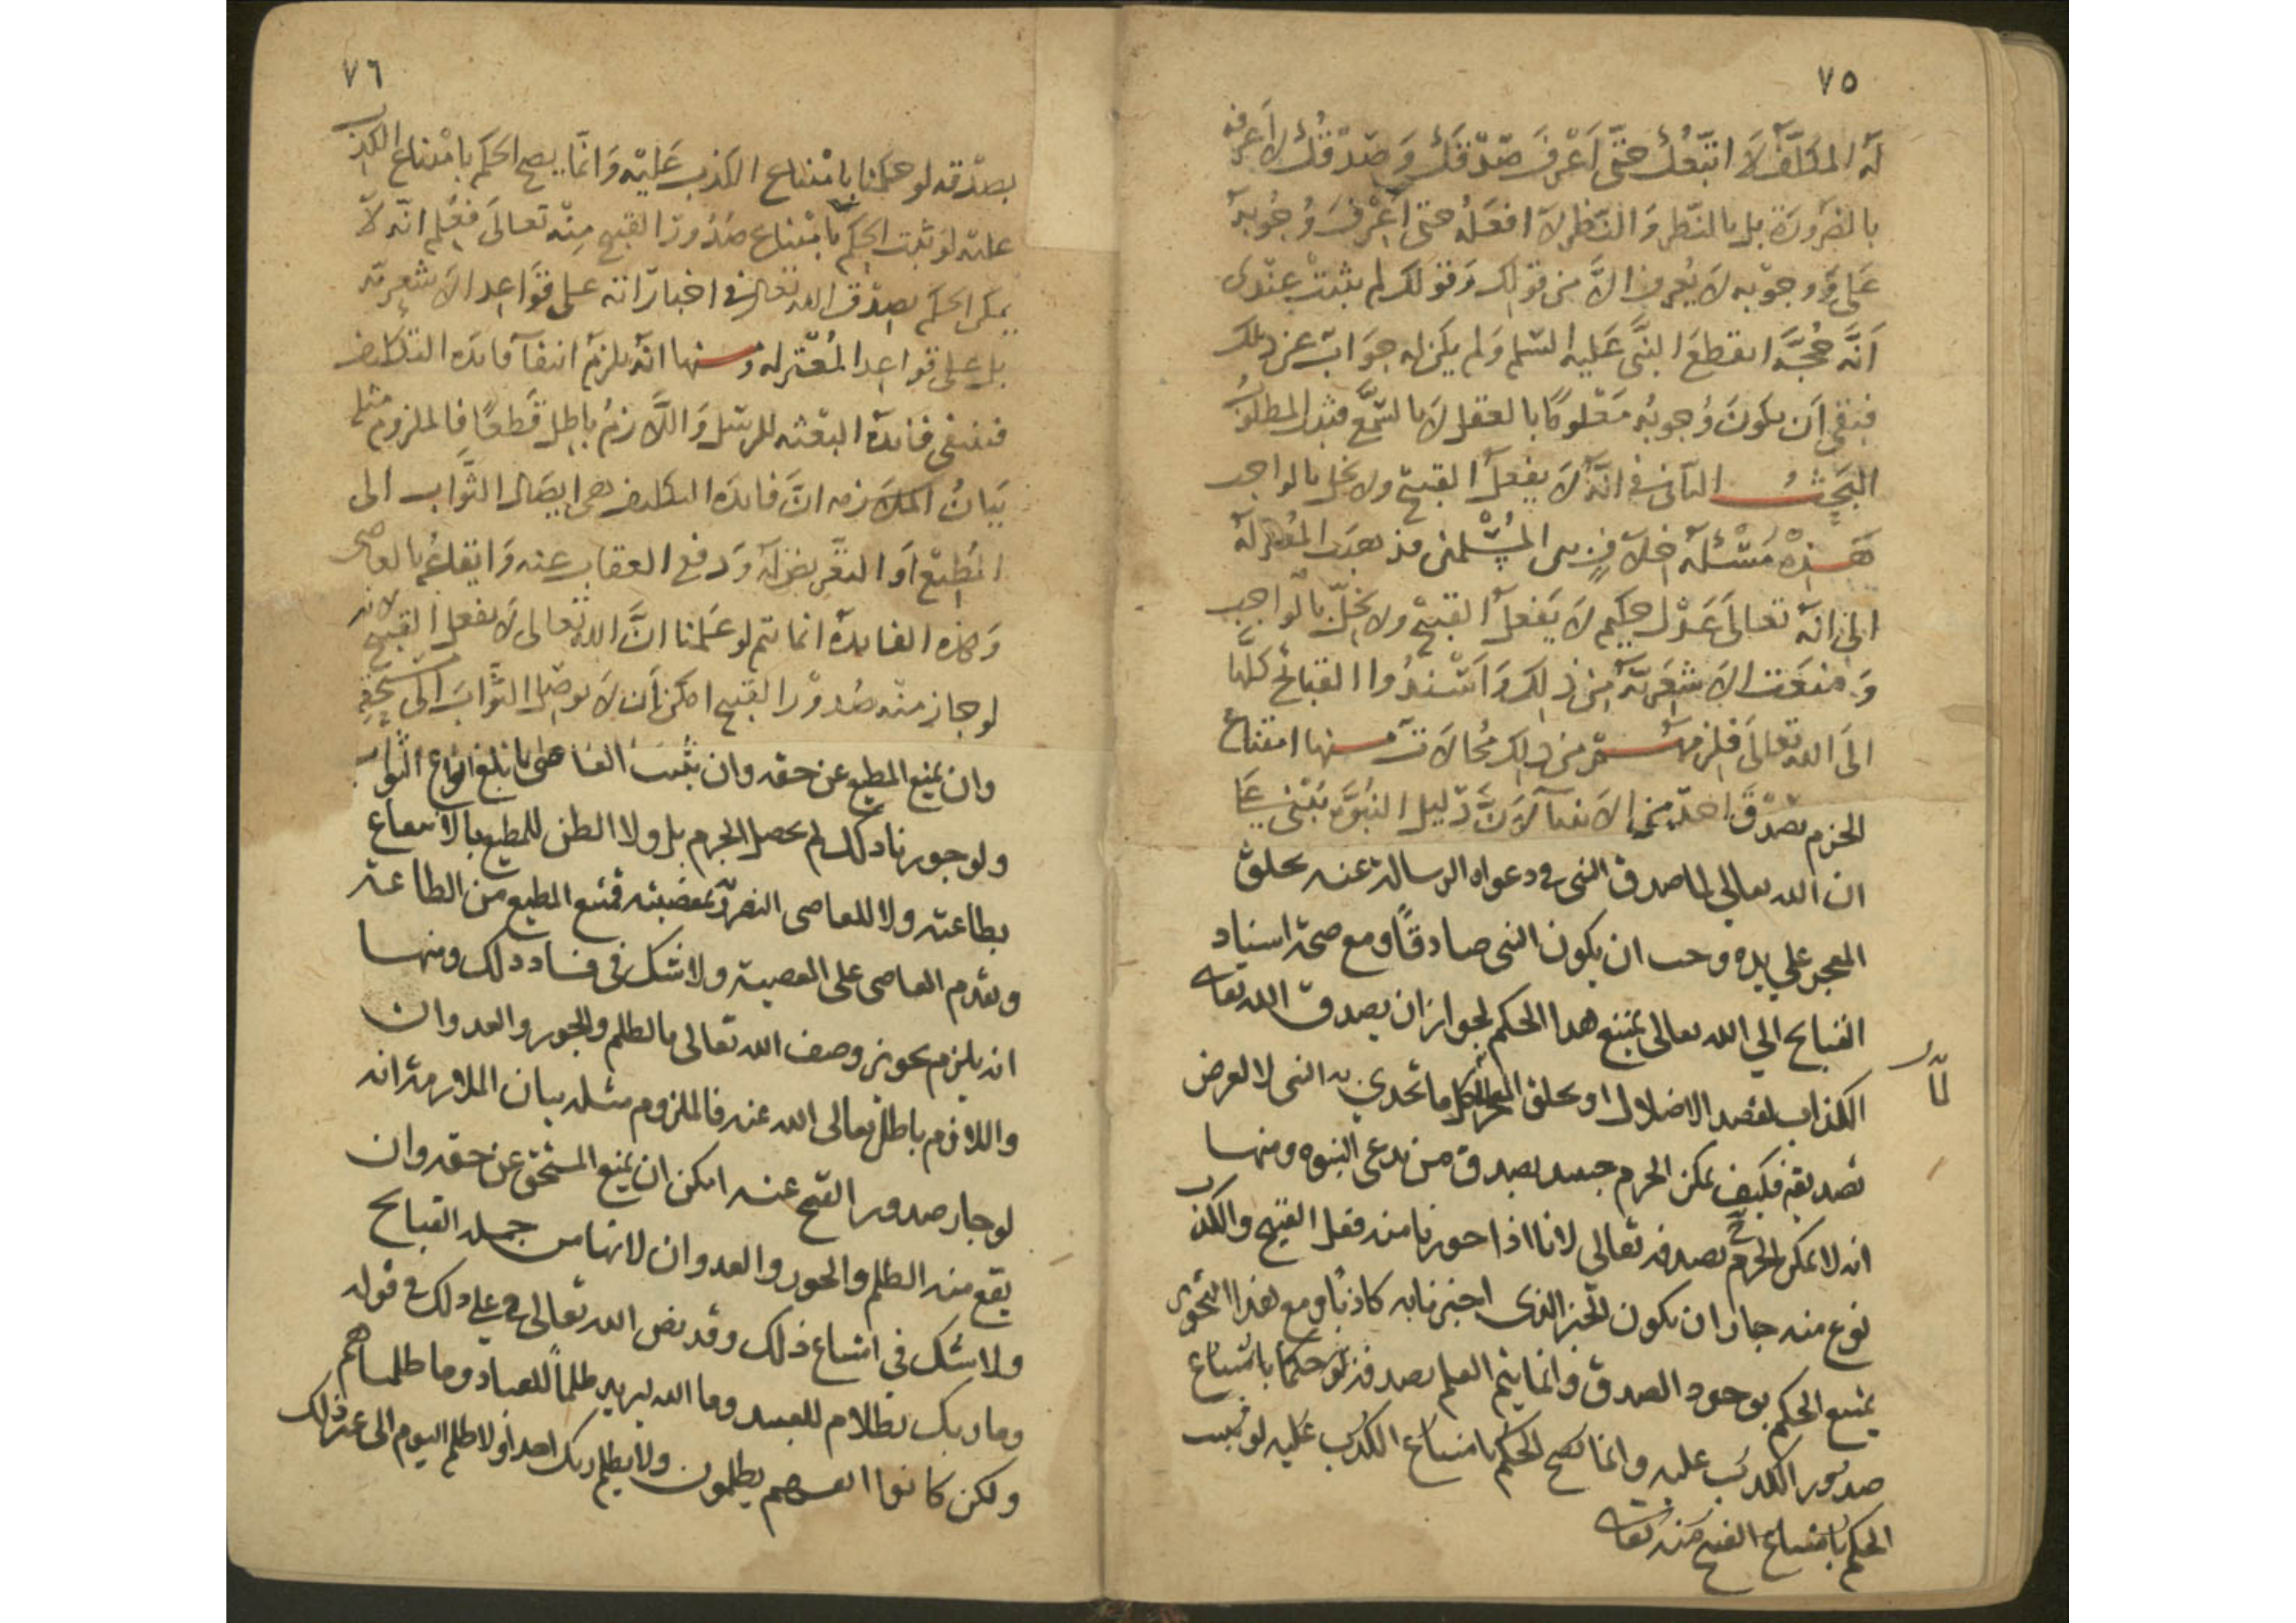 ٧٥
له المكلف لا اتبعك حتى اعرف صدقك وصدقك لا اعرفه
بالضرورة بل بالنظر والنظر لا افعله حتى اعرف وجوبه
على ووجوبه لا يعرف الا من قولك وقولك لم يثبت عندى
انه حجة انقطع النبى عليه السلم ولم يكن له جواب عن ذلك
فبقى ان يكون وجوبه معلوما بالعقل لا بالسمع فثبت المطلوب
البحث الثانى فى انه لا يفعل القبيح ولا يخل بالواجب
هذه مسئلة خلاف بين المسلمين فذهبت المعتزلة
الى انه تعالى عدل حكيم لا يفعل القبيح ولا يخل بالواجب
ومنعت الاشعرية من ذلك واسندوا القبائح كلها
الى الله تعالى فلزمهم من ذلك محالات منها امتناع
الجزم بصدق احد من الانبيآ لان دليل النبوة يبتنى على
ان الله تعالي لما صدق النبى فى دعواه الرسالة عنه بخلق
المعجز علي يده وجب ان يكون النبى صادقا ومع صحة اسناد
القبائح الي الله تعالى يمتنع هذا الحكم لجواز ان يصدق الله تعالى
الكذاب لقصد الاضلال او يخلق المعجز لكل ما تحدي به النبى لا لغرض
تصديقه فكيف يمكن الجزم حينئذ بصدق من يدعى النبوه ومنها
انه لا يمكن الجزم بصدقه تعالى لانا اذا جوزنا منه فعل القبيح والكذب
نوع منه جاز ان يكون الخبر الذى اخبرنا به كاذبا ومع هذا التجويز
يمتنع الحكم بوجود الصدق وانما يتم العلم بصدقه لو حكمنا بامتناع
صدور الكذب عليه وانما يصح الحكم بامتناع الكذب عليه لو ثبت
الحكم بامتناع القبيح منه تعالى
٧٦
بصدقه لو حكمنا بامتناع الكذب عليه وانما يصح الحكم بامتناع الكذب
عليه لو ثبت الحكم بامتناع صدور القبيح منه تعالى فعلم انه لا
يمكن الحكم بصدق الله تعالى فى اخباراته على قواعد الاشعرية
بل على قواعد المعتزله ومنها انه يلزم انتفآ فايده التكليف
فينتفى فائدة البعثه للرسل واللازم باطل قطعا فالملزوم مثله
بيان الملازمه ان فايده التكليف هى ايصال الثواب الى
المطيع او التعريض له ودفع العقاب عنه وايقاعه بالعاصى
وهذه الفايدة انما تتم لو علمنا ان الله تعالى لا يفعل القبيح لانه
لو جاز منه صدور القبيح امكن ان لا يوصل الثواب الى مستحقه
وان يمنع المطيع عن حقه وان يثيب العاصى بابلغ انواع الثواب
ولو جوزنا ذلك لم يحصل الجزم بل ولا الظن للمطيع بالانتفاع
بطاعته ولا للعاصى التضرر بمعصيته فيمتنع المطيع من الطاعة
ويقدم العاصى على المعصية ولا شك فى فساد ذلك ومنها
انه يلزم تجويز وصف الله تعالى بالظلم والجور والعدوان
واللازم باطل تعالى الله عنه فالملزوم مثله بيان الملازمة انه
لو جاز صدور القبح عنه امكن ان يمنع المستحق عن حقه وان
يقع منه الظلم والجور والعدوان لانها من جملة القبائح
ولا شك فى امتناع ذلك وقد نص الله تعالى فى علي ذلك فى قوله
وما ربك بظلام للعبيد وما الله يريد ظلما للعباد وما ظلمناهم
ولكن كانوا انفسهم يظلمون ولا يظلم ربك احدا ولا ظلم اليوم الى غير ذلك